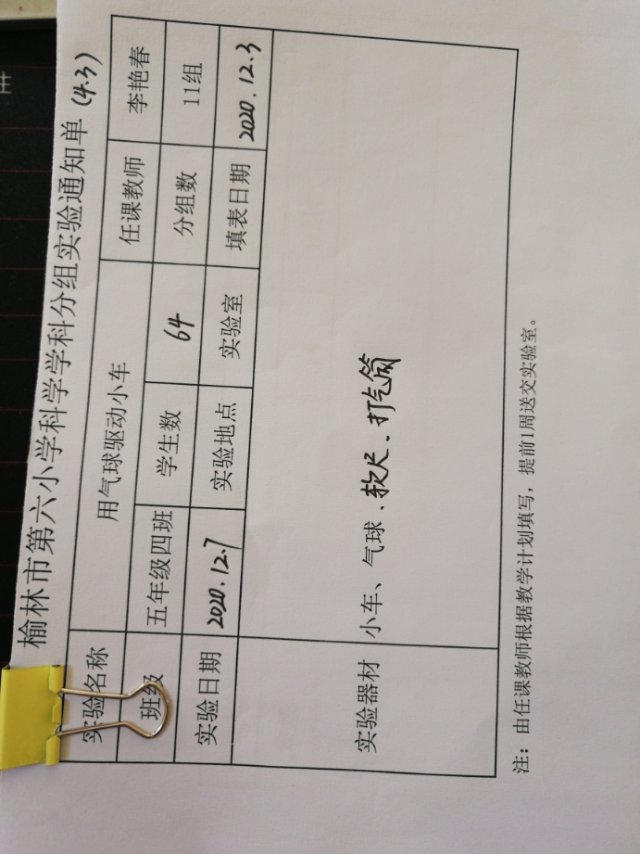 榆林市第六小学科学学科分组实验通知单 (4.3)
实验名称 用气球驱动小车 任课教师 李艳春
班级 五年级四班 学生数 64 分组数 11组
实验日期 2020.12.7 实验地点 实验室 填表日期 2020.12.3
实验器材 小车、气球、软尺、打气筒
注：由任课教师根据教学计划填写，提前1周送交实验室。